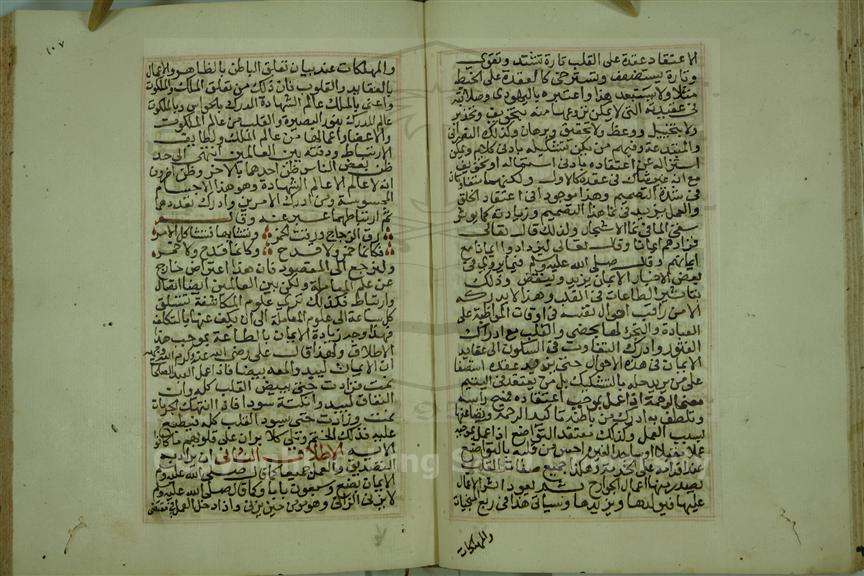 الاعتقاد عقدة على القلب تارة تشتد وتقوى
وتارة تستضعف وتسترخى كالعقدة على الخيط
مثلا ولا يستبعد هذا واعتبره باليهودى وصلابته
فى عقيدته التى لا يمكن نزوعها منه بتخويف وتحذير
ولا بتخييل ووعظ ولا تحقيق وبرهان وكذلك النصرانى
والمبتدعة وفيهم من يمكن تشكيكه بادنى كلام ويمكن
استنزاله عن اعتقاده بادنى استمالة او تخويف
مع انه غير شاك فى عقده كالاول ولكنهما متفاوتان
فى شدة التصميم وهذا موجود فى اعتقاد الحق
والعمل يوثر فى نماء هذا التصميم وزيادته كما يوثر
سقى الماء فى نماء الاشجار ولذلك قال تعالى
فزادهم ايمانا وقال تعالى ليزدادوا ايمانا مع
ايمانهم وقال صلى الله عليه وسلم فيما يروى فى
بعض الاخبار الايمان يزيد وينقص وذلك
بتاثير الطاعات فى القلب وهذا لا يدركه
الا من راقب احوال نفسه فى اوقات المواظبة على
العبادة والتجرد لها بحضور القلب مع ادراك
الفتور وادراك التفاوت فى السكون الى عقايد
الايمان فى هذه الاحوال حتى يزيد عقده استعصا
على من يريد حله بالتشكيك بل من يعتقد فى اليتيم
معنى الرحمة اذا عمل بموجب اعتقاده فمسح راسه
وتلطف به ادرك من باطنه تاكيد الرحمة وتضاعفها
بسبب العمل وكذلك معتقد التواضع اذا عمل بموجبه
عملا مقبلا او ساجدا لغيره احس من قلبه بالتواضع
عند اقدامه على الخدمة وهكذا جميع صفات القلب
تصدر منها اعمال الجوارح ثم يعود اثر الاعمال
عليها فيولدها ويزيدها وسياتى هذا فى ربع المنجيات
والمهلكات
١٠٧
والمهلكات عند بيان تعلق الباطن بالظاهر والاعمال
بالعقايد والقلوب فان ذلك من تعلق الملك والملكوت
واعنى بالملك عالم الشهادة المدرك بالحواس وبالملكوت
عالم المدرك بنور البصيرة والقلب من عالم الملكوت
والاعضا واعمالها من عالم الملك ولطايف
الارتباط ودقته بين العالمين انتهى الى حد
ظن بعض الناس ظن احدهما بالاخر وظن اخرون
انه لا عالم الا عالم الشهادة وهو هذه الاجسام
المحسوسة ومن ادرك الامرين وادرك تعددهما
ثم ارتباطهما عبر عنه وقال
رق الزجاج ورقت الخمر وتشابها فتشاكل الامر
فكانما خمر ولا قدح وكانما قدح ولا خمر
ولنرجع الى المقصود فان هذا اعتراض خارج
عن علم المعاملة ولكن بين العالمين ايضا اتصال
وارتباط فكذلك ترى علوم المكاشفة تتسلق
كل ساعة الى علوم المعاملة الى ان يكف عنها بالتكلف
فهذا وجه زيادة الايمان بالطاعة بموجب هذا
الاطلاق ولهذا قال على رضى الله عنه وكرم الله وجهه
ان الايمان ليبدو لمعة بيضا فاذا عمل العبد الصالحات
نمت فزادت حتى يبيض القلب كله وان
النفاق ليبدو نكتة سودا فاذا انتهك الحرمات
نمت وزادت حتى يسود القلب كله فيطبع
عليه فذلك الختم وتلى كلا بل ران على قلوبهم ما كانوا
الاية الاطلاق الثانى ان يراد به
التصديق والعمل جميعا كما قال صلى الله عليه وسلم
الايمان بضع وسبعون بابا وكما قال صلى الله عليه وسلم
لا يزنى الزانى وهو مومن حين يزنى واذا دخل العمل فى مقتضى